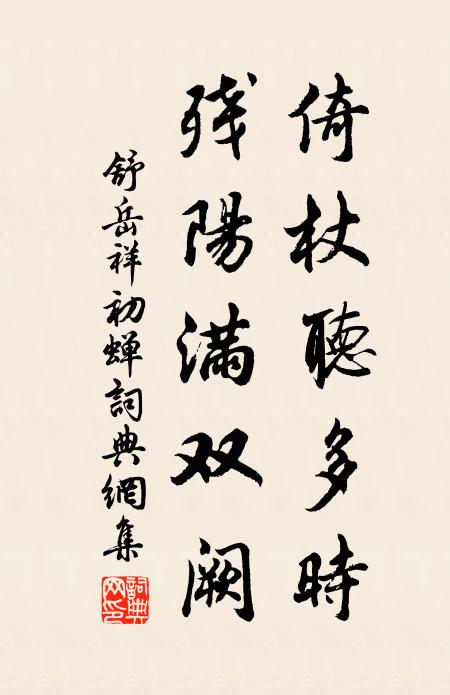 倚杖聽多時
残陽滿双阙
舒岳祥初蝉詞典網集
詞典网印